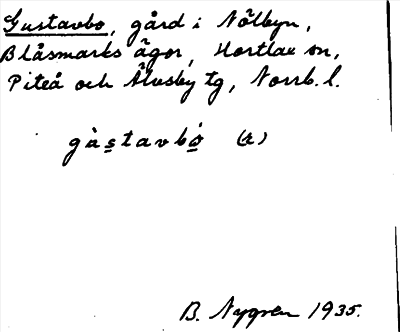 Gustavbo, gård i Nölbyn,
Blåsmarks ägor, Hortlax sn,
Piteå och Älvsby tg, Norrb. l.
gùstavbó (R)
B. Nygren 1935.